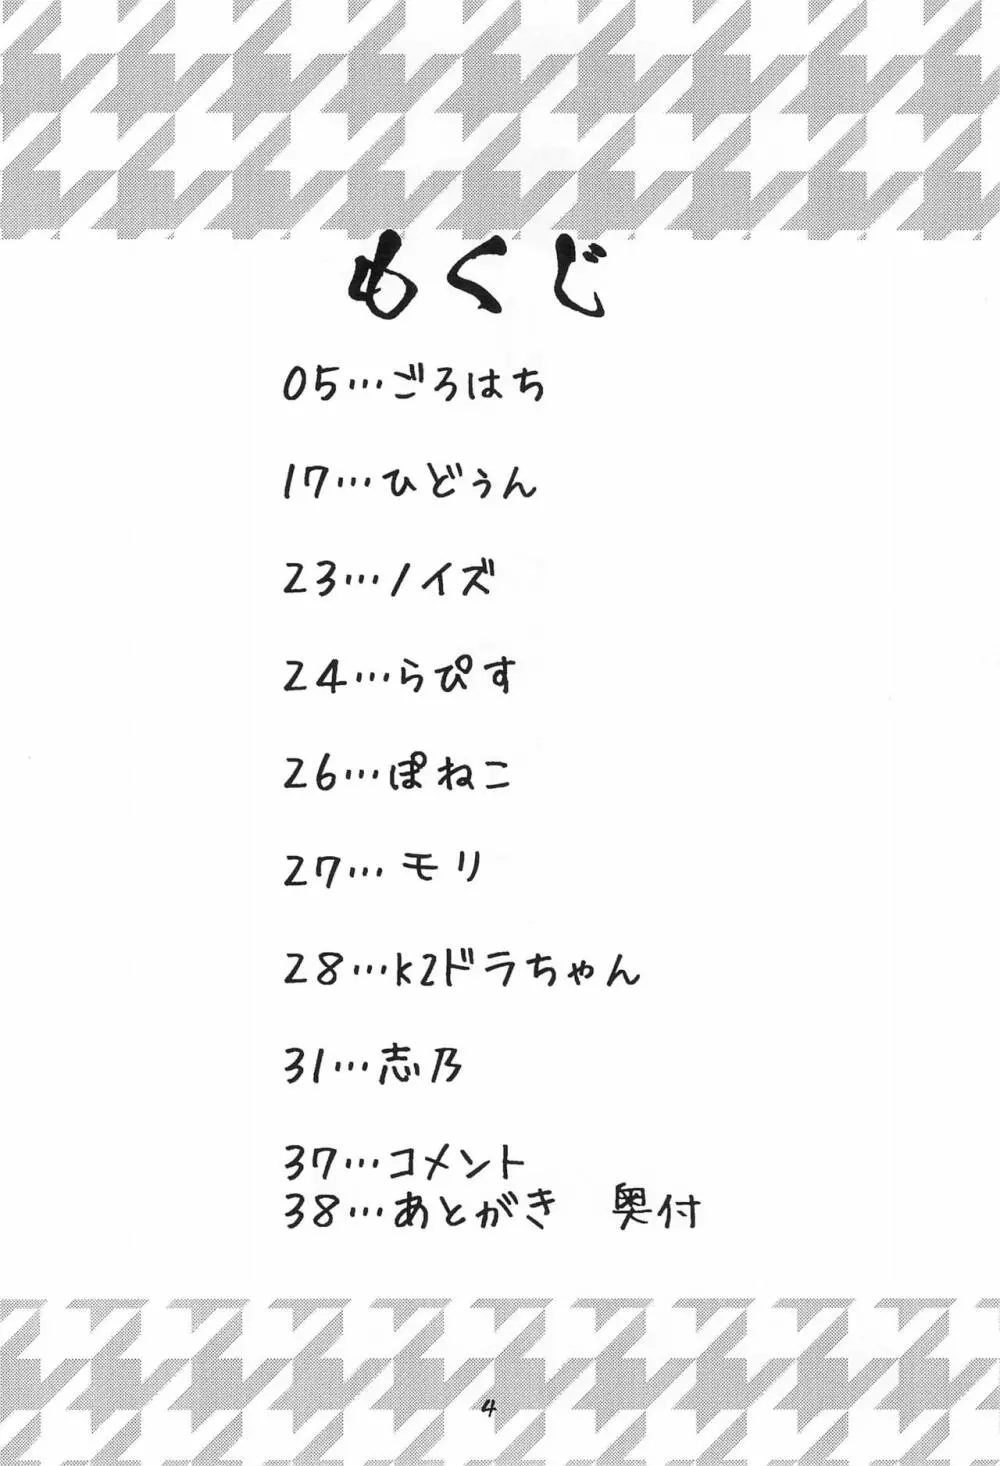 もくじ
05…ごろはち
17…ひどぅん
23…ノイズ
24…らぴす
26…ぽねこ
27…モリ
28…K2ドラちゃん
31…志乃
37…コメント
38…あとがき 奥付
4